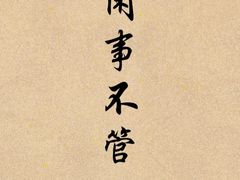 闲事不管